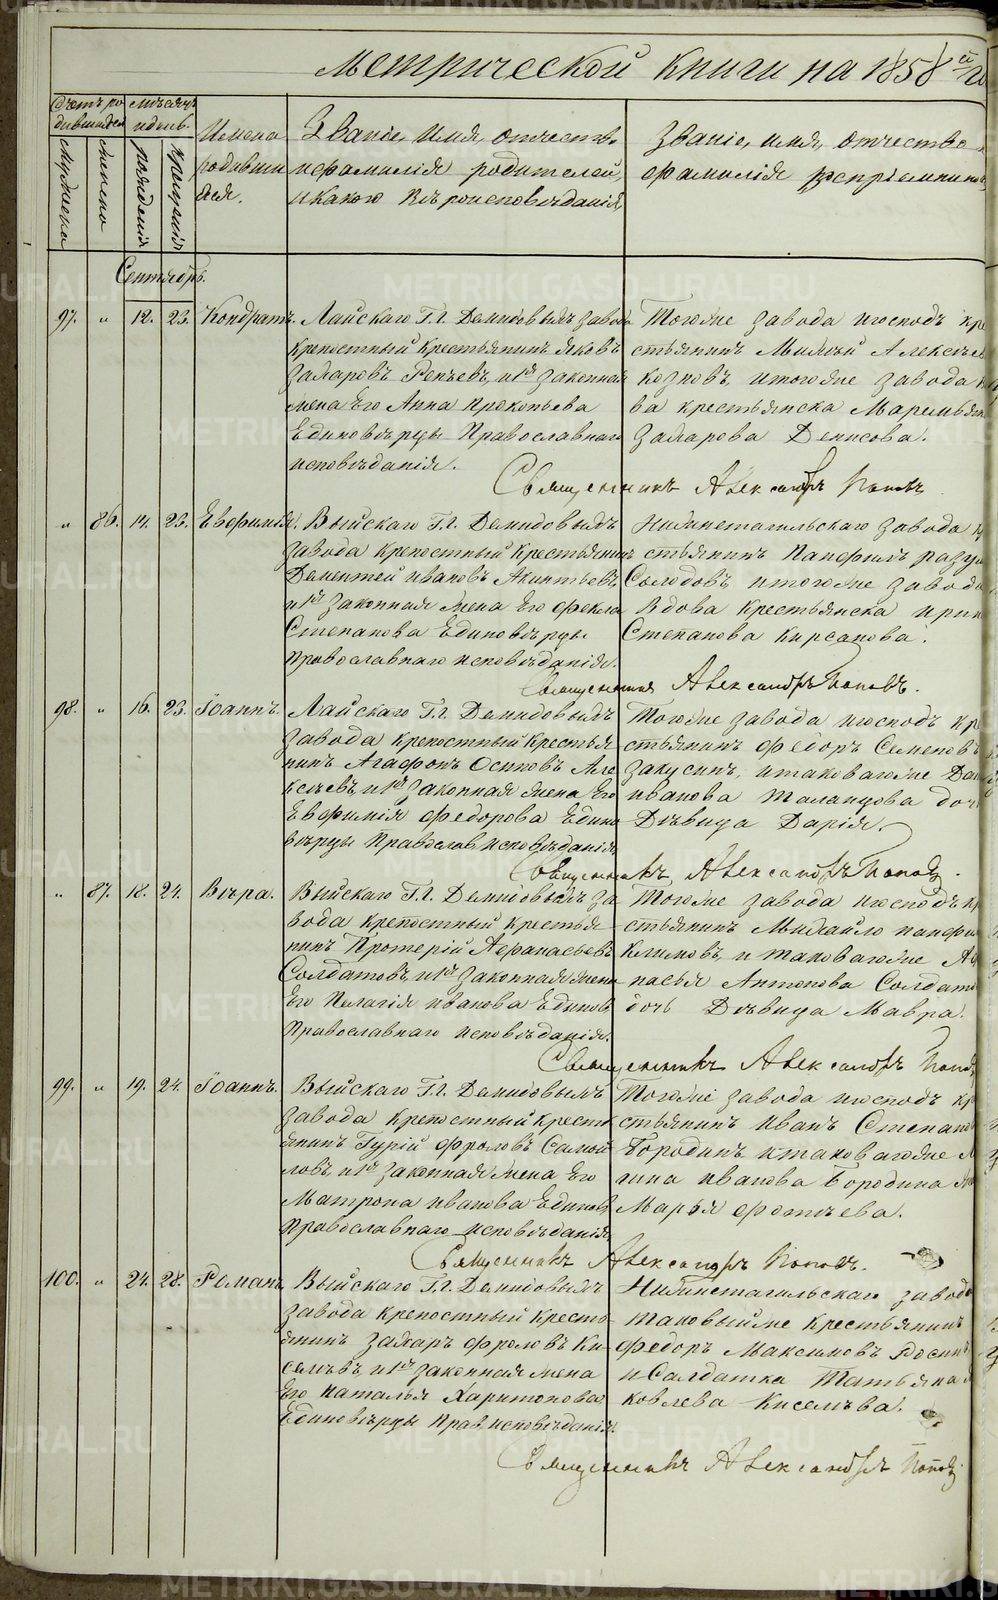 Метрической книги на 1858й го
Счетъ ро
дившихся
мѣсяцъ
и день
Имена
родивши
яся.
Званіе, имя, отчество
и фамилія родителей,
и какого вѣроисповѣданія.
Званіе, имя, отчество
фамилія воспріемников
Мужеска
Женска
рожденія
крещенія
Сентябрь.
97. " 12. 23. Кондратъ.
Лайскаго Г.г. Демидовыхъ завода
крепостный крестьянинъ Яковъ
Захаровъ Репьевъ, и 1я законная
жена Его Анна Прокопьева
Единовѣрцы Православнаго
исповѣданія.
Тогоже завода господъ кре
стьянинъ Михѣй Алексѣев
Козловъ, и тогоже завода
ва крестьянска Маремьяна
Захарова Денисова.
Священникъ Александръ Поповъ
" 86. 14. 23. Евфимія.
Выйскаго Г.г. Демидовыхъ
завода крепостный крестьянинъ
Дементей Ивановъ Акинтьевъ
и 1я законная жена Его Фекла
Степанова Единовѣрцы
Православнаго исповѣданія.
Нижнетагильскаго завода кр
стьянинъ Панфилъ
Солодовъ и тогоже завода
Вдова крестьянска Ирина
Степанова Кирсанова.
Священникъ Александръ Поповъ.
98. " 16. 23. Іоаннъ.
Лайскаго Г.г. Демидовыхъ
завода крепостный крестья
нинъ Агафонъ Осиповъ Але
ксѣевъ и 1я законная жена Его
Евфимія Федорова Едино
вѣрцы Православ. исповѣданія
Тогоже завода господъ кр
стьянинъ Федоръ Семеновъ
Закусинъ, и таковагоже
Иванова Таланцова дочь
Дѣвица Дарія.
Священникъ Александръ Поповъ.
" 87. 18. 24. Вѣра.
Выйскаго Г.г. Демидовыхъ за
вода крепостный крестья
нинъ Протерій Афанасьевъ
Солдатовъ, и 1я законная жена
Его Пелагія Иванова Единов.
Православнаго исповѣданія.
Тогоже завода господъ кр
стьянинъ Михайло Панфи
Климовъ, и таковагоже Аф
насья Антонова Солдато
дочь Дѣвица Мавра.
Священникъ Александръ Попов
99. " 19. 24. Іоаннъ.
Выйскаго Г.г. Демидовыхъ
завода крепостный кресть
янинъ Гурій Фроловъ Самой
ловъ, и 1я законная жена Его
Матрона Иванова Единов.
Православнаго исповѣданія
Тогоже завода господъ кр
стьянинъ Иванъ Степано
Бородинъ и таковагоже
Иванова Бородина
Марья Фотіева.
Священникъ Александръ Поповъ.
100. " 24. 28. Романъ
Выйскаго Г.г. Демидовыхъ
завода крепостный кресть
янинъ Захаръ Фроловъ Ки
селевъ, и 1я законная жена
Его Наталья Харитонова
Единовѣрцы Прав. исповѣданія.
Нижнетагильскаго завода
таковыйже крестьянинъ
Федоръ Максимовъ
и Солдатка Татьяна Я
ковлева Киселѣва.
Священникъ Александръ Поповъ
METRIKI.GASO-URAL.RU